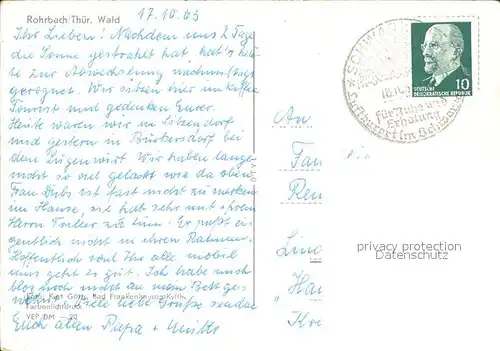 Rohrbach/Thür. Wald
17.10.63
Ihr Lieben! Nachdem uns 2 Tage
die Sonne gestrahlt hat, hat's heu-
te zur Abwechslung nachmittags
geregnet. Wir sitzen hier im Kaffee
Tourist und gedenken Eurer.
Heute waren wir in Sitzendorf
und gestern in Burkersdorf bei
den Wirt. Wir haben lange
nicht so viel gelacht wie da oben.
Frau ist fast nicht zu merken
im Hause, sie hat sehr mit ihrem
Herrn zu tun. Er paßt ei-
gentlich nicht in ihren Rahmen.
Hoffentlich seid Ihr alle mobil
uns geht es gut. Ich habe mich
bloß noch nicht an mein Bett ge-
Viele liebe Grüße senden
Euch allen Papa + Mutti
Foto: Kurt Göth, Bad Frankenhausen/Kyffh.
Farbenlichtdruck
VEP DM —.20
DTV
SCHWA
für Urlaub und
Erholung
Luftkurort im Schwarza
DEUTSCHE
DEMOKRATISCHE REPUBLIK
10
An
Fam
Ren
Lind
Ha
Kre
privacy protection
Datenschutz